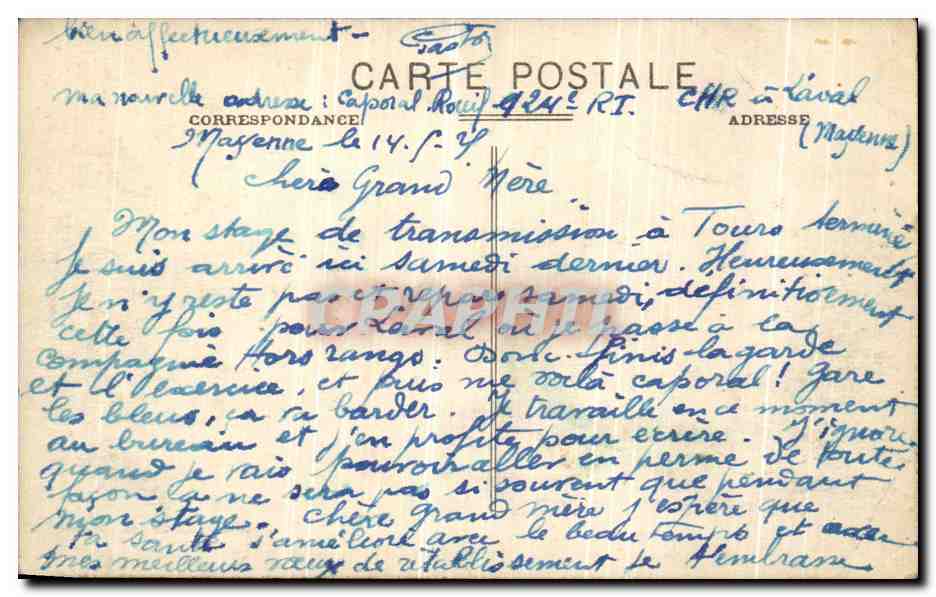 bien affectueusement - Gaston
CARTE POSTALE
ma nouvelle adresse : Caporal 124e RI. CHR à Laval
CORRESPONDANCE ADRESSE
Mayenne le 14. (Mayenne)
Chère Grand Mère
Mon stage de transmission à Tours terminé
je suis arrivé ici samedi dernier. Heureusement
je n'y reste pas et repars samedi, définitivement
cette fois pour Laval où je passe à la
compagnie Hors rangs. Donc finis la garde
et l'exercice, et puis me voilà caporal! Gare
les bleus, ça va barder. Je travaille en ce moment
au bureau et j'en profite pour écrire. J'ignore
quand je vais pouvoir aller en perme de toute
façon ça ne sera pas si souvent que pendant
mon stage. Chère grand mère j'espère que
ta santé s'améliore avec le beau temps et avec
mes meilleurs vœux de rétablissement je t'embrasse
CPAPHIL